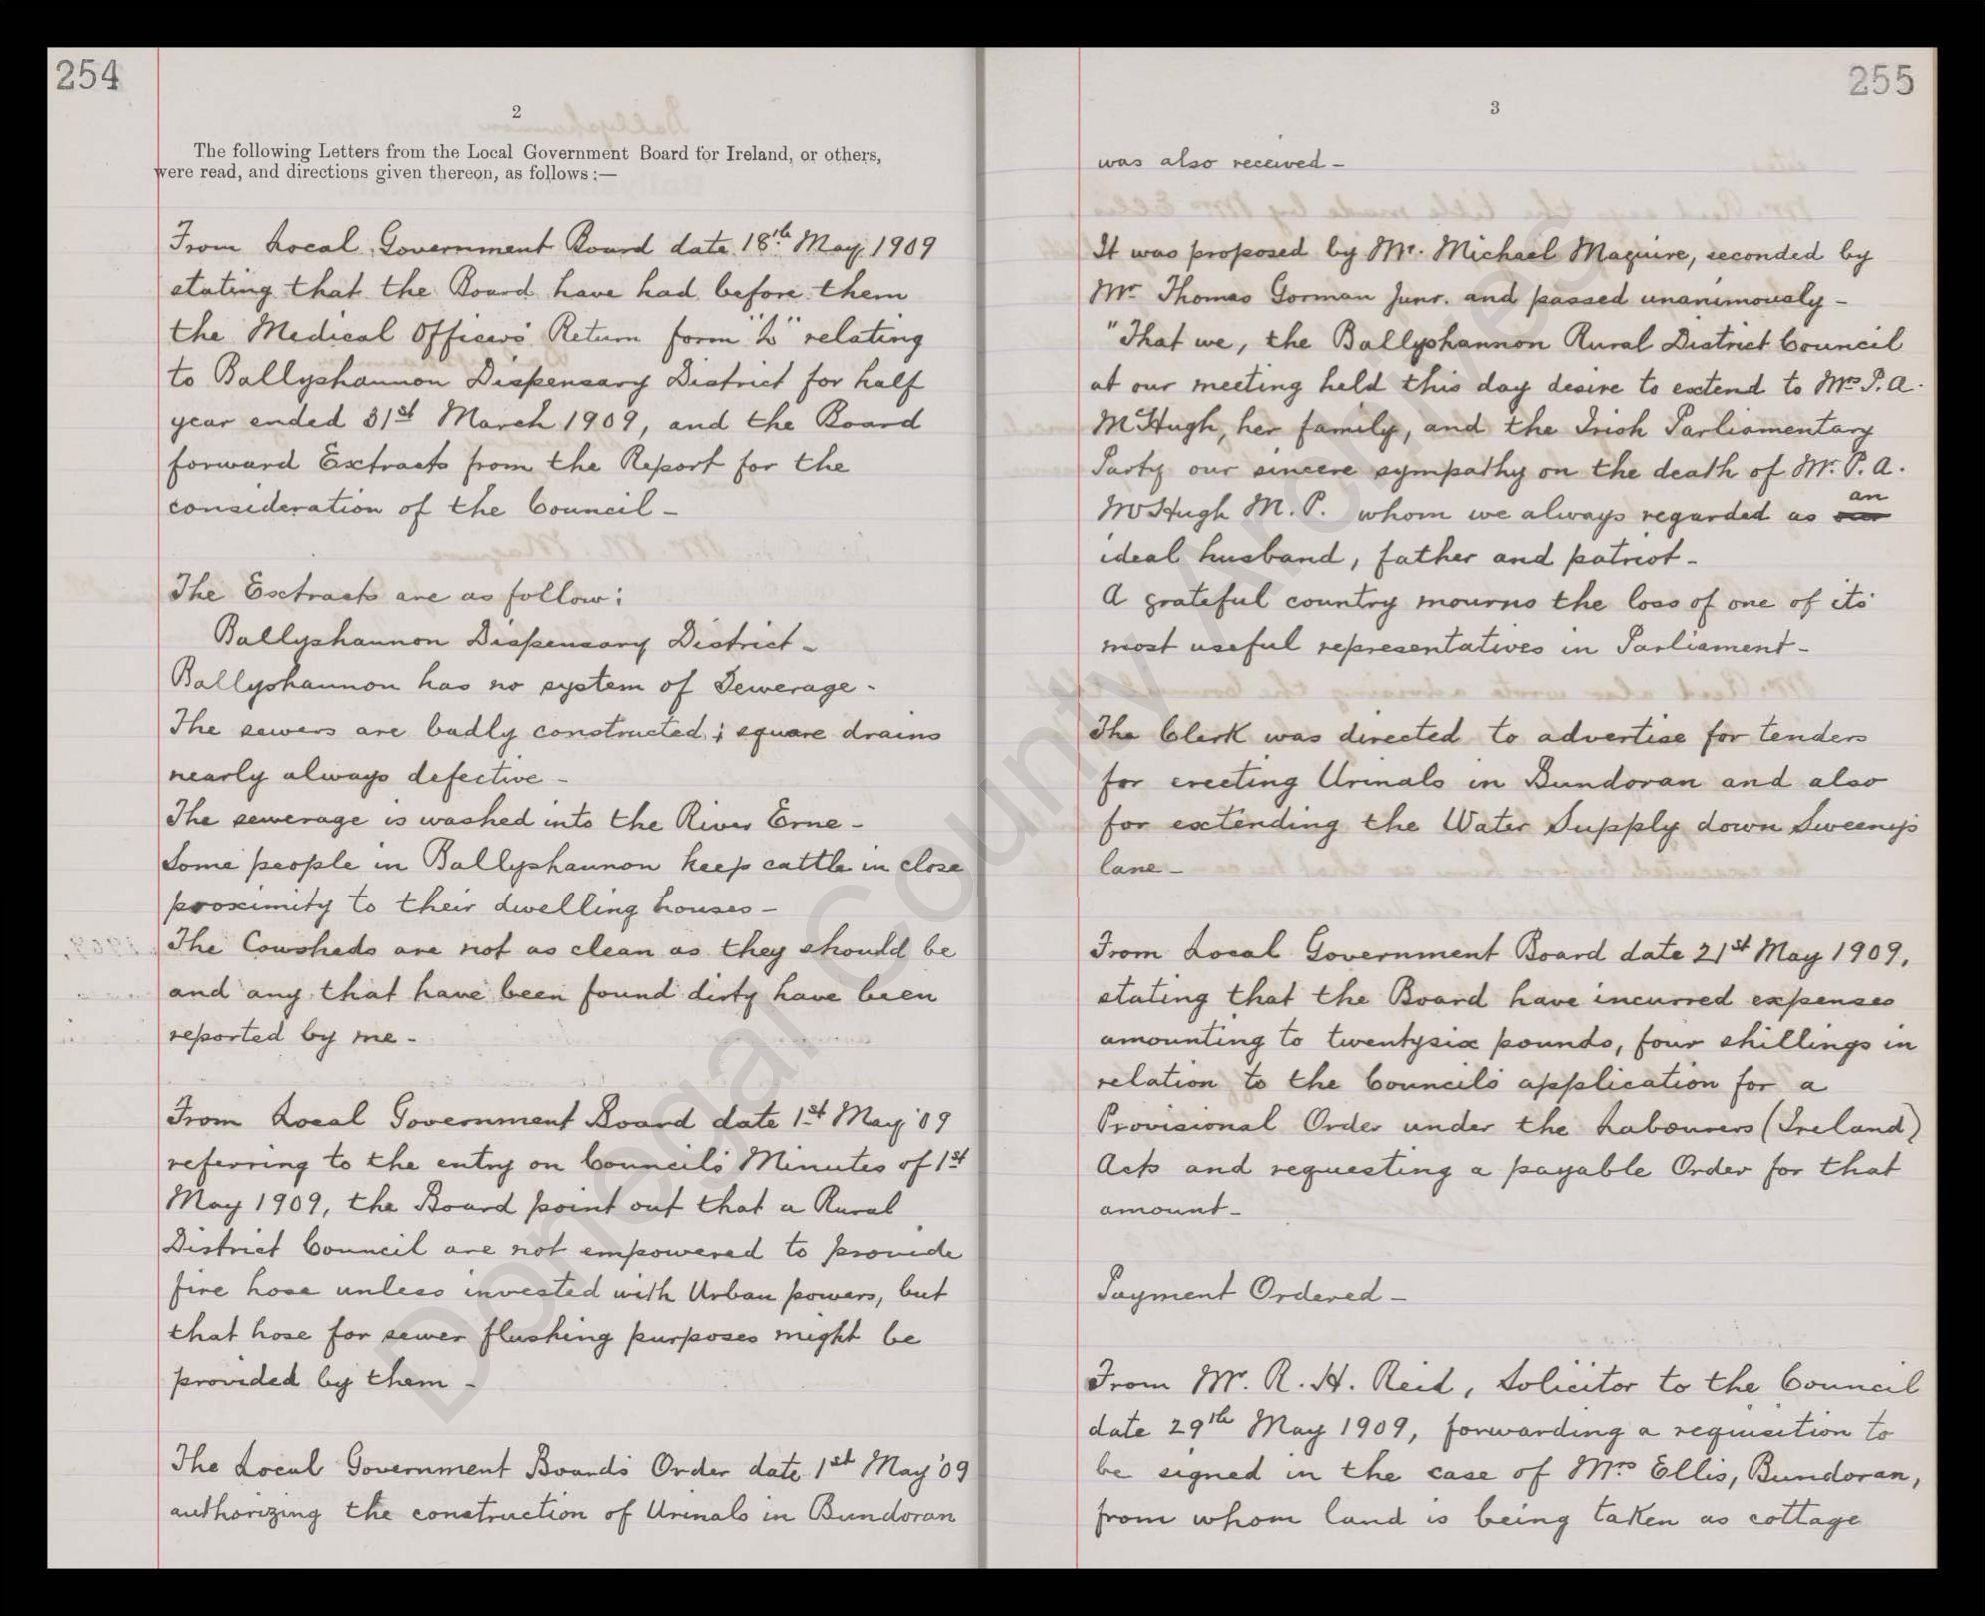 254
2
The following Letters from the Local Government Board for Ireland, or others,
were read, and directions given thereon, as follows:—
From Local Government Board date 18th May 1909
stating that the Board have had before them
the Medical Officers' Return form "L" relating
to Ballyshannon Dispensary District for half
year ended 31st March 1909, and the Board
forward Extracts from the Report for the
consideration of the Council -
The Exctracts are as follow;
Ballyshannon Dispensary District -
Ballyshannon has no system of Sewerage -
The sewers are badly constructed; square drains
nearly always defective -
The sewerage is washed into the River Erne -
Some people in Ballyshannon keep cattle in close
proximity to their dwelling houses -
The Cowsheds are not as clean as they should be
and any that have been found dirty have been
reported by me -
From Local Government Board date 1st May '09
referring to the entry on Council's Minutes of 1st
May 1909, the Board point out that a Rural
District Council are not empowered to provide
fire hose unless invested with Urban powers, but
that hose for sewer flushing purposes might be
provided by them -
The Local Government Board's Order date 1st May '09
authorizing the construction of Urinals in Bundoran
255
3
was also received -
It was proposed by Mr. Michael Maguire, seconded by
Mr Thomas Gorman Junr. and passed unanimously -
"That we, the Ballyshannon Rural District Council
at our meeting held this day desire to extend to Mrs P. A.
McHugh, her family, and the Irish Parliamentary
Party our sincere sympathy on the death of Mr. P. A.
McHugh M. P. whom we always regarded as an
ideal husband, father and patriot -
A grateful country mourns the loss of one of its'
most useful representatives in Parliament -
The Clerk was directed to advertise for tenders
for erecting Urinals in Bundoran and also
for extending the Water Supply down Sweeny's
lane -
From Local Government Board date 21st May 1909,
stating that the Board have incurred expenses
amounting to twentysix pounds, four shillings in
relation to the Council's application for a
Provisional Order under the Labourers (Ireland)
Acts and requesting a payable Order for that
amount -
Payment Ordered -
From Mr. R. H. Reid, Solicitor to the Council
date 29th May 1909, forwarding a requisition to
be signed in the case of Mrs Ellis, Bundoran,
from whom land is being taken as cottage
Donegal County Archives